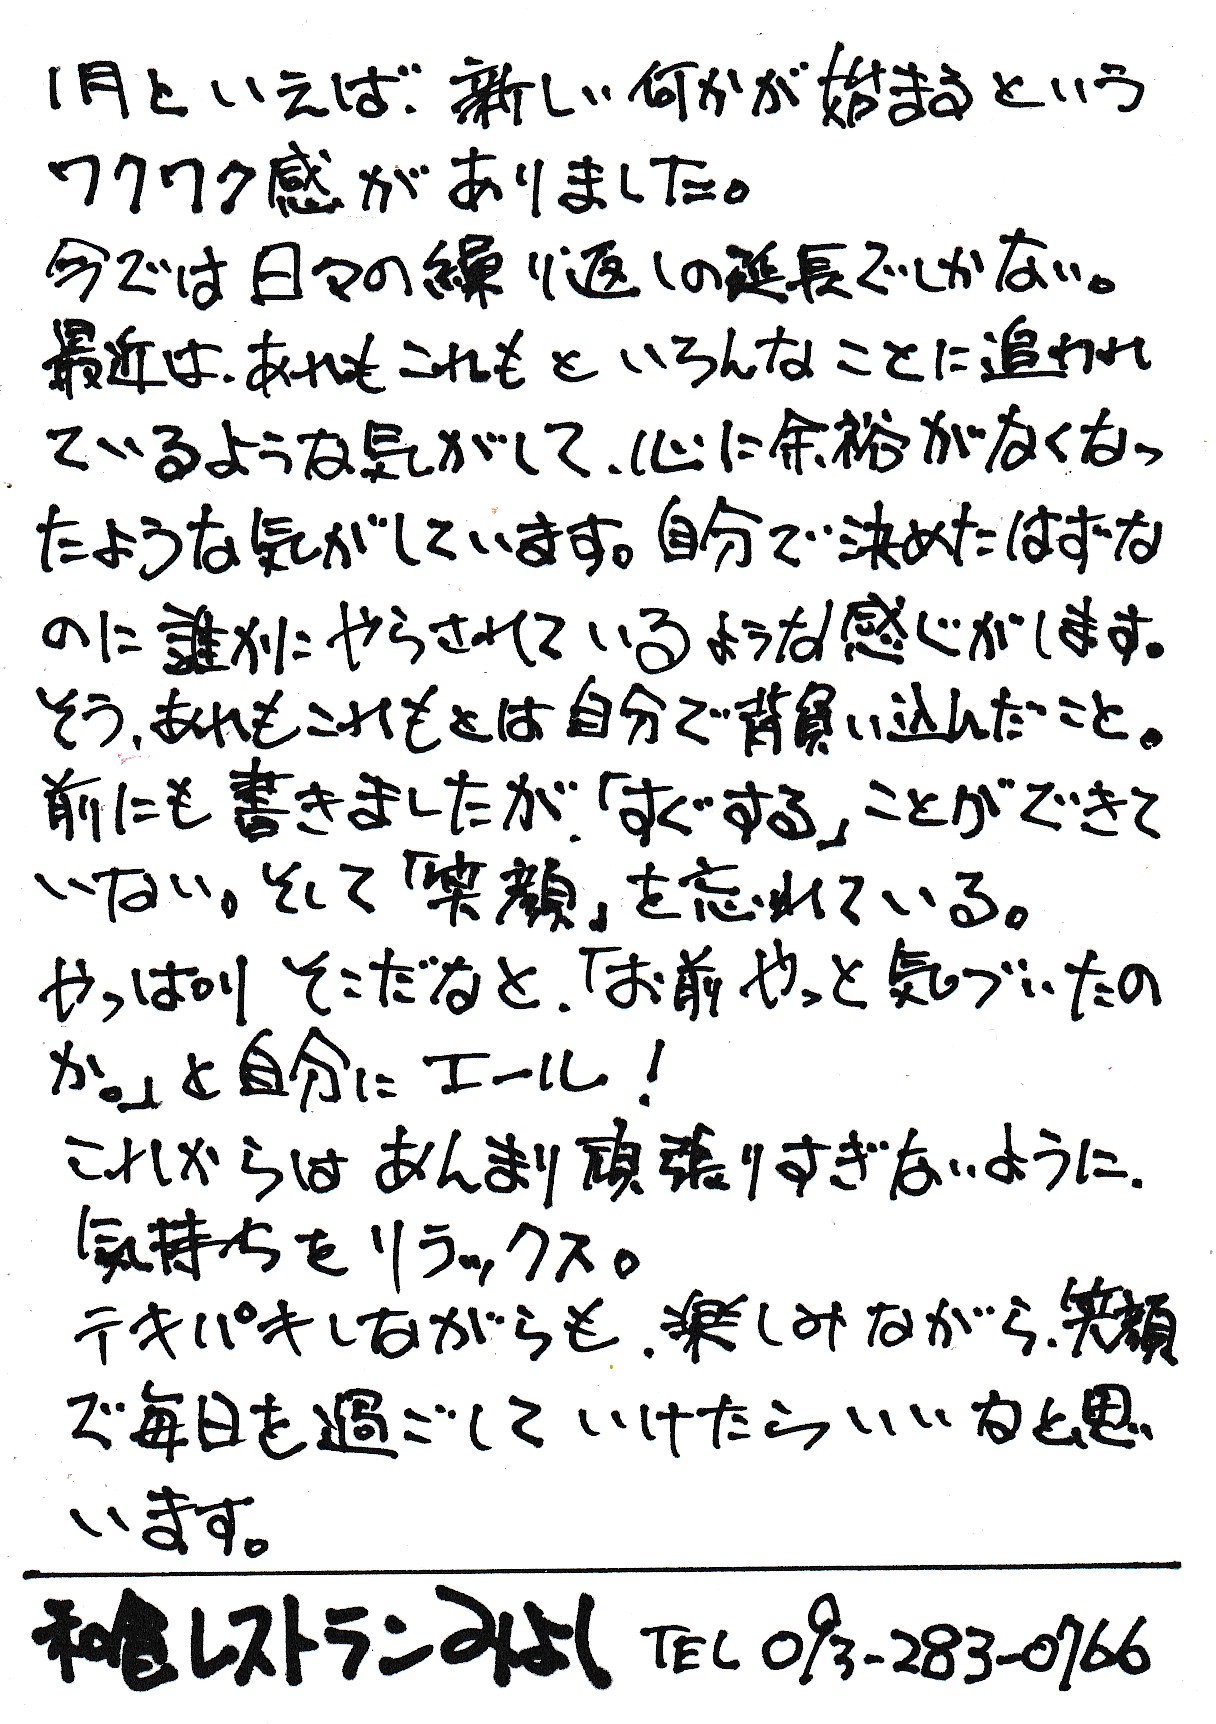 1月といえば、新しい何かが始まるという
ワクワク感がありました。
今では日々の繰り返しの延長でしかない。
最近は、あれもこれもといろんなことに追われ
ているような気がして、心に余裕がなくなっ
たような気がしています。自分で決めたはずな
のに誰かにやらされているような感じがします。
そう、あれもこれもとは自分で背負い込んだこと。
前にも書きましたが、「すぐする」ことができて
いない。そして「笑顔」を忘れている。
やっぱりそこだなと、「お前やっと気づいたの
か。」と自分にエール!
これからはあんまり頑張りすぎないように、
気持ちをリラックス。
テキパキしながらも、楽しみながら、笑顔
で毎日を過ごしていけたらいいなと思
います。
和食レストランみよし TEL 093-283-0766